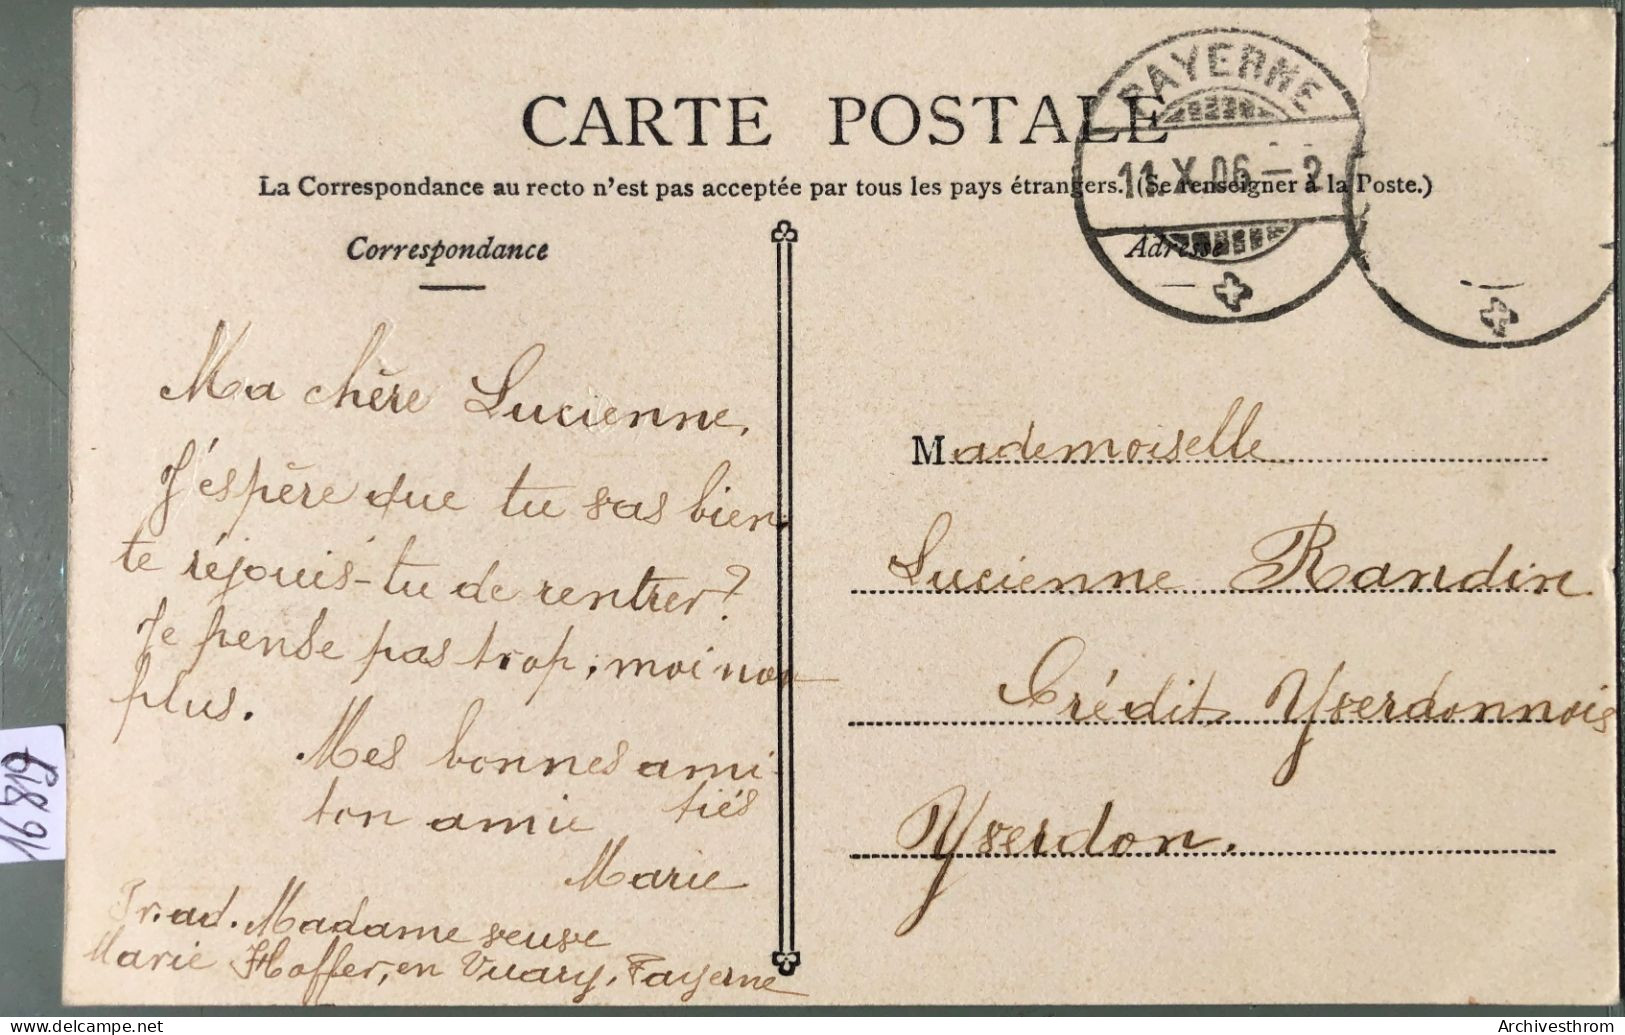 CARTE POSTALE
La Correspondance au recto n'est pas acceptée par tous les pays étrangers. (Se renseigner à la Poste.)
PAYERNE
11.X.06-2
Correspondance
Ma chère Lucienne,
J'éspère que tu vas bien,
te réjouis-tu de rentrer?
Je pense pas trop, moi non
plus.
Mes bonnes ami-
tiés
ton amie
Marie
Pr. ad. Madame veuve
Marie Hoffer, en Vuary, Payerne
Adresse
Mademoiselle
Lucienne Randin
Crédit Yverdonnois
Yverdon.
16819
Archivesthrom